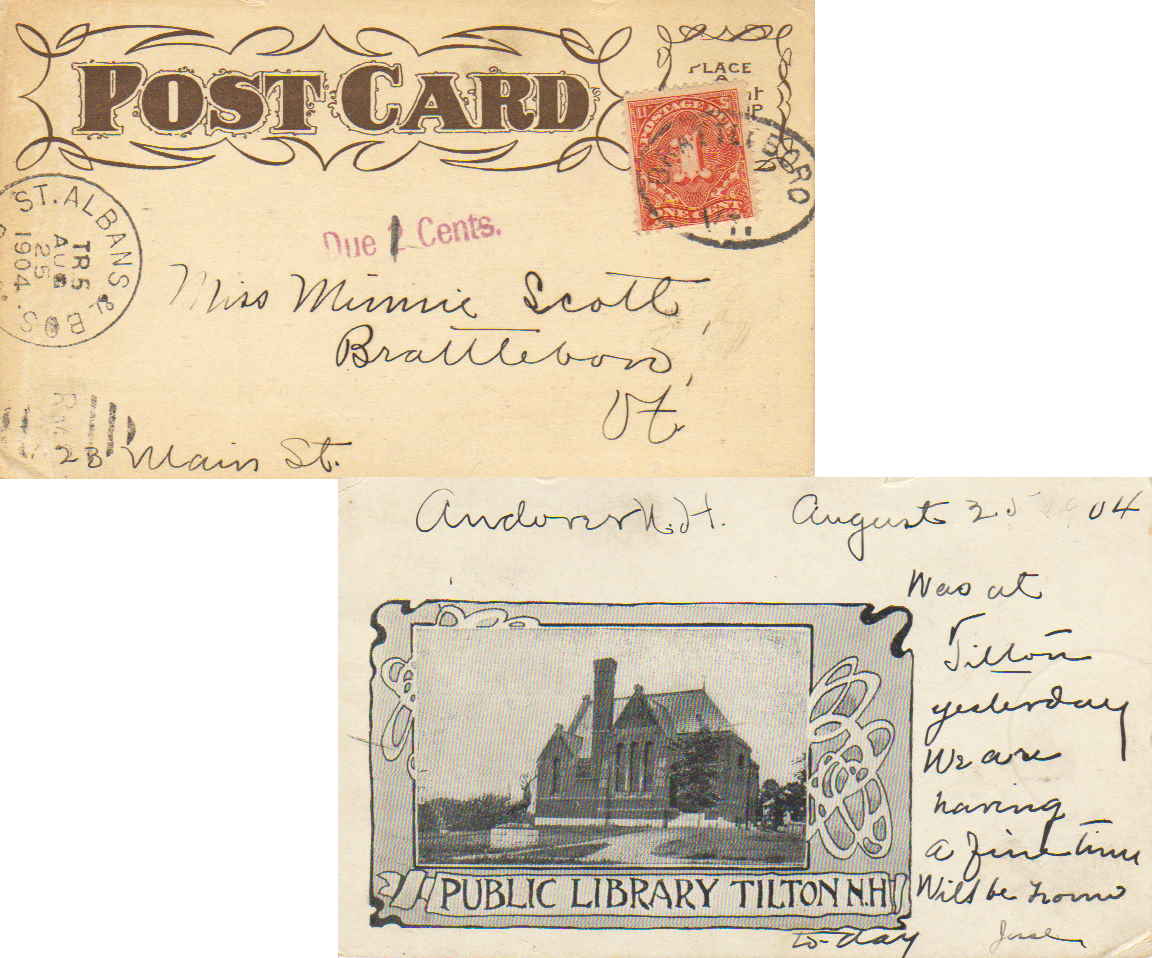 POST CARD
PLACE
POSTAGE DUE
1
ONE CENT
BRATTLEBORO
ST. ALBANS & BOS
TR 5
AUG
25
1904
Due Cents.
Miss Minnie Scott,
Brattleboro,
Vt.
23 Main St.
Andover N.H. August 25 04
Was at
Tilton
yesterday
We are
having
a fine time
Will be home
to-day
PUBLIC LIBRARY TILTON N.H